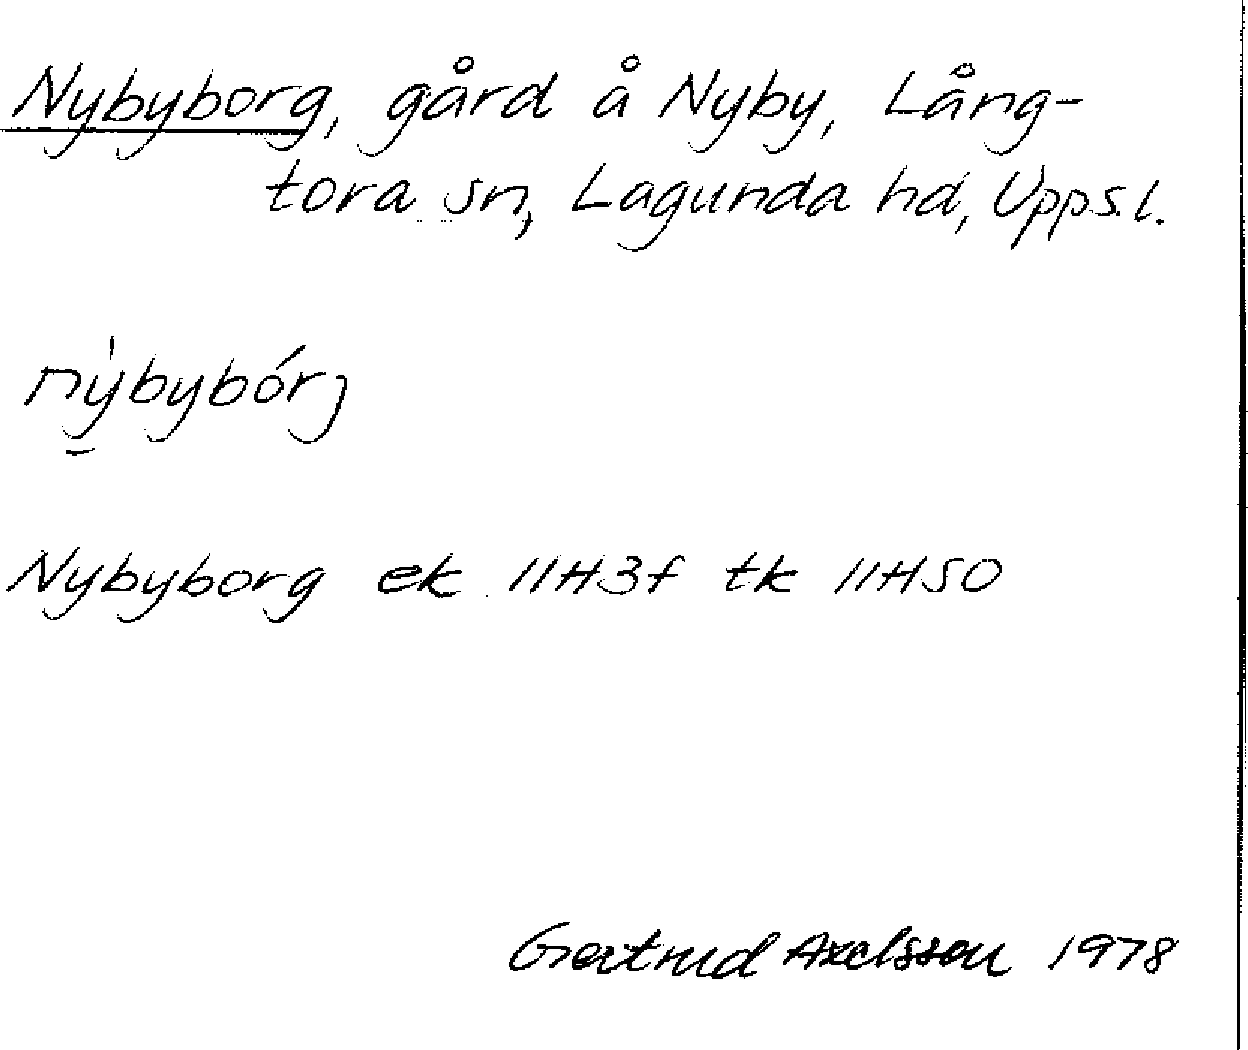 Nybyborg, gård å Nyby, Lång-
tora sn, Lagunda hd, Uppsl.
nỳ̲bybórj
Nybyborg ek 11H3f tk 11HSO
Gertrud Axelsson 1978